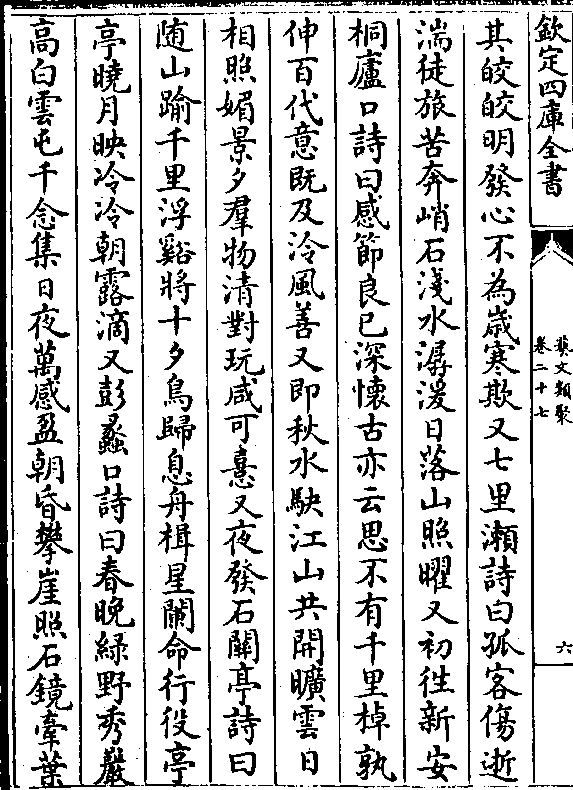 欽定四庫全書
藝文類聚
卷二十七
六
其皎皎明發心不為歲寒欺又七里瀬詩曰孤客傷逝
湍徒旅苦奔峭石淺水潺湲日落山照曜又初徃新安
桐廬口詩曰感節良已深懷古亦云思不有千里棹孰
伸百代意既及泠風善又即秋水駃江山共開曠雲日
相照媚景夕羣物清對玩咸可憙又夜發石關亭詩曰
随山踰千里浮谿將十夕鳥歸息舟楫星闌命行役亭
亭曉月映冷冷朝露滴又彭蠡口詩曰春晚緑野秀巖
高白雲屯千念集日夜萬感盈朝昏攀崖照石鏡牽葉